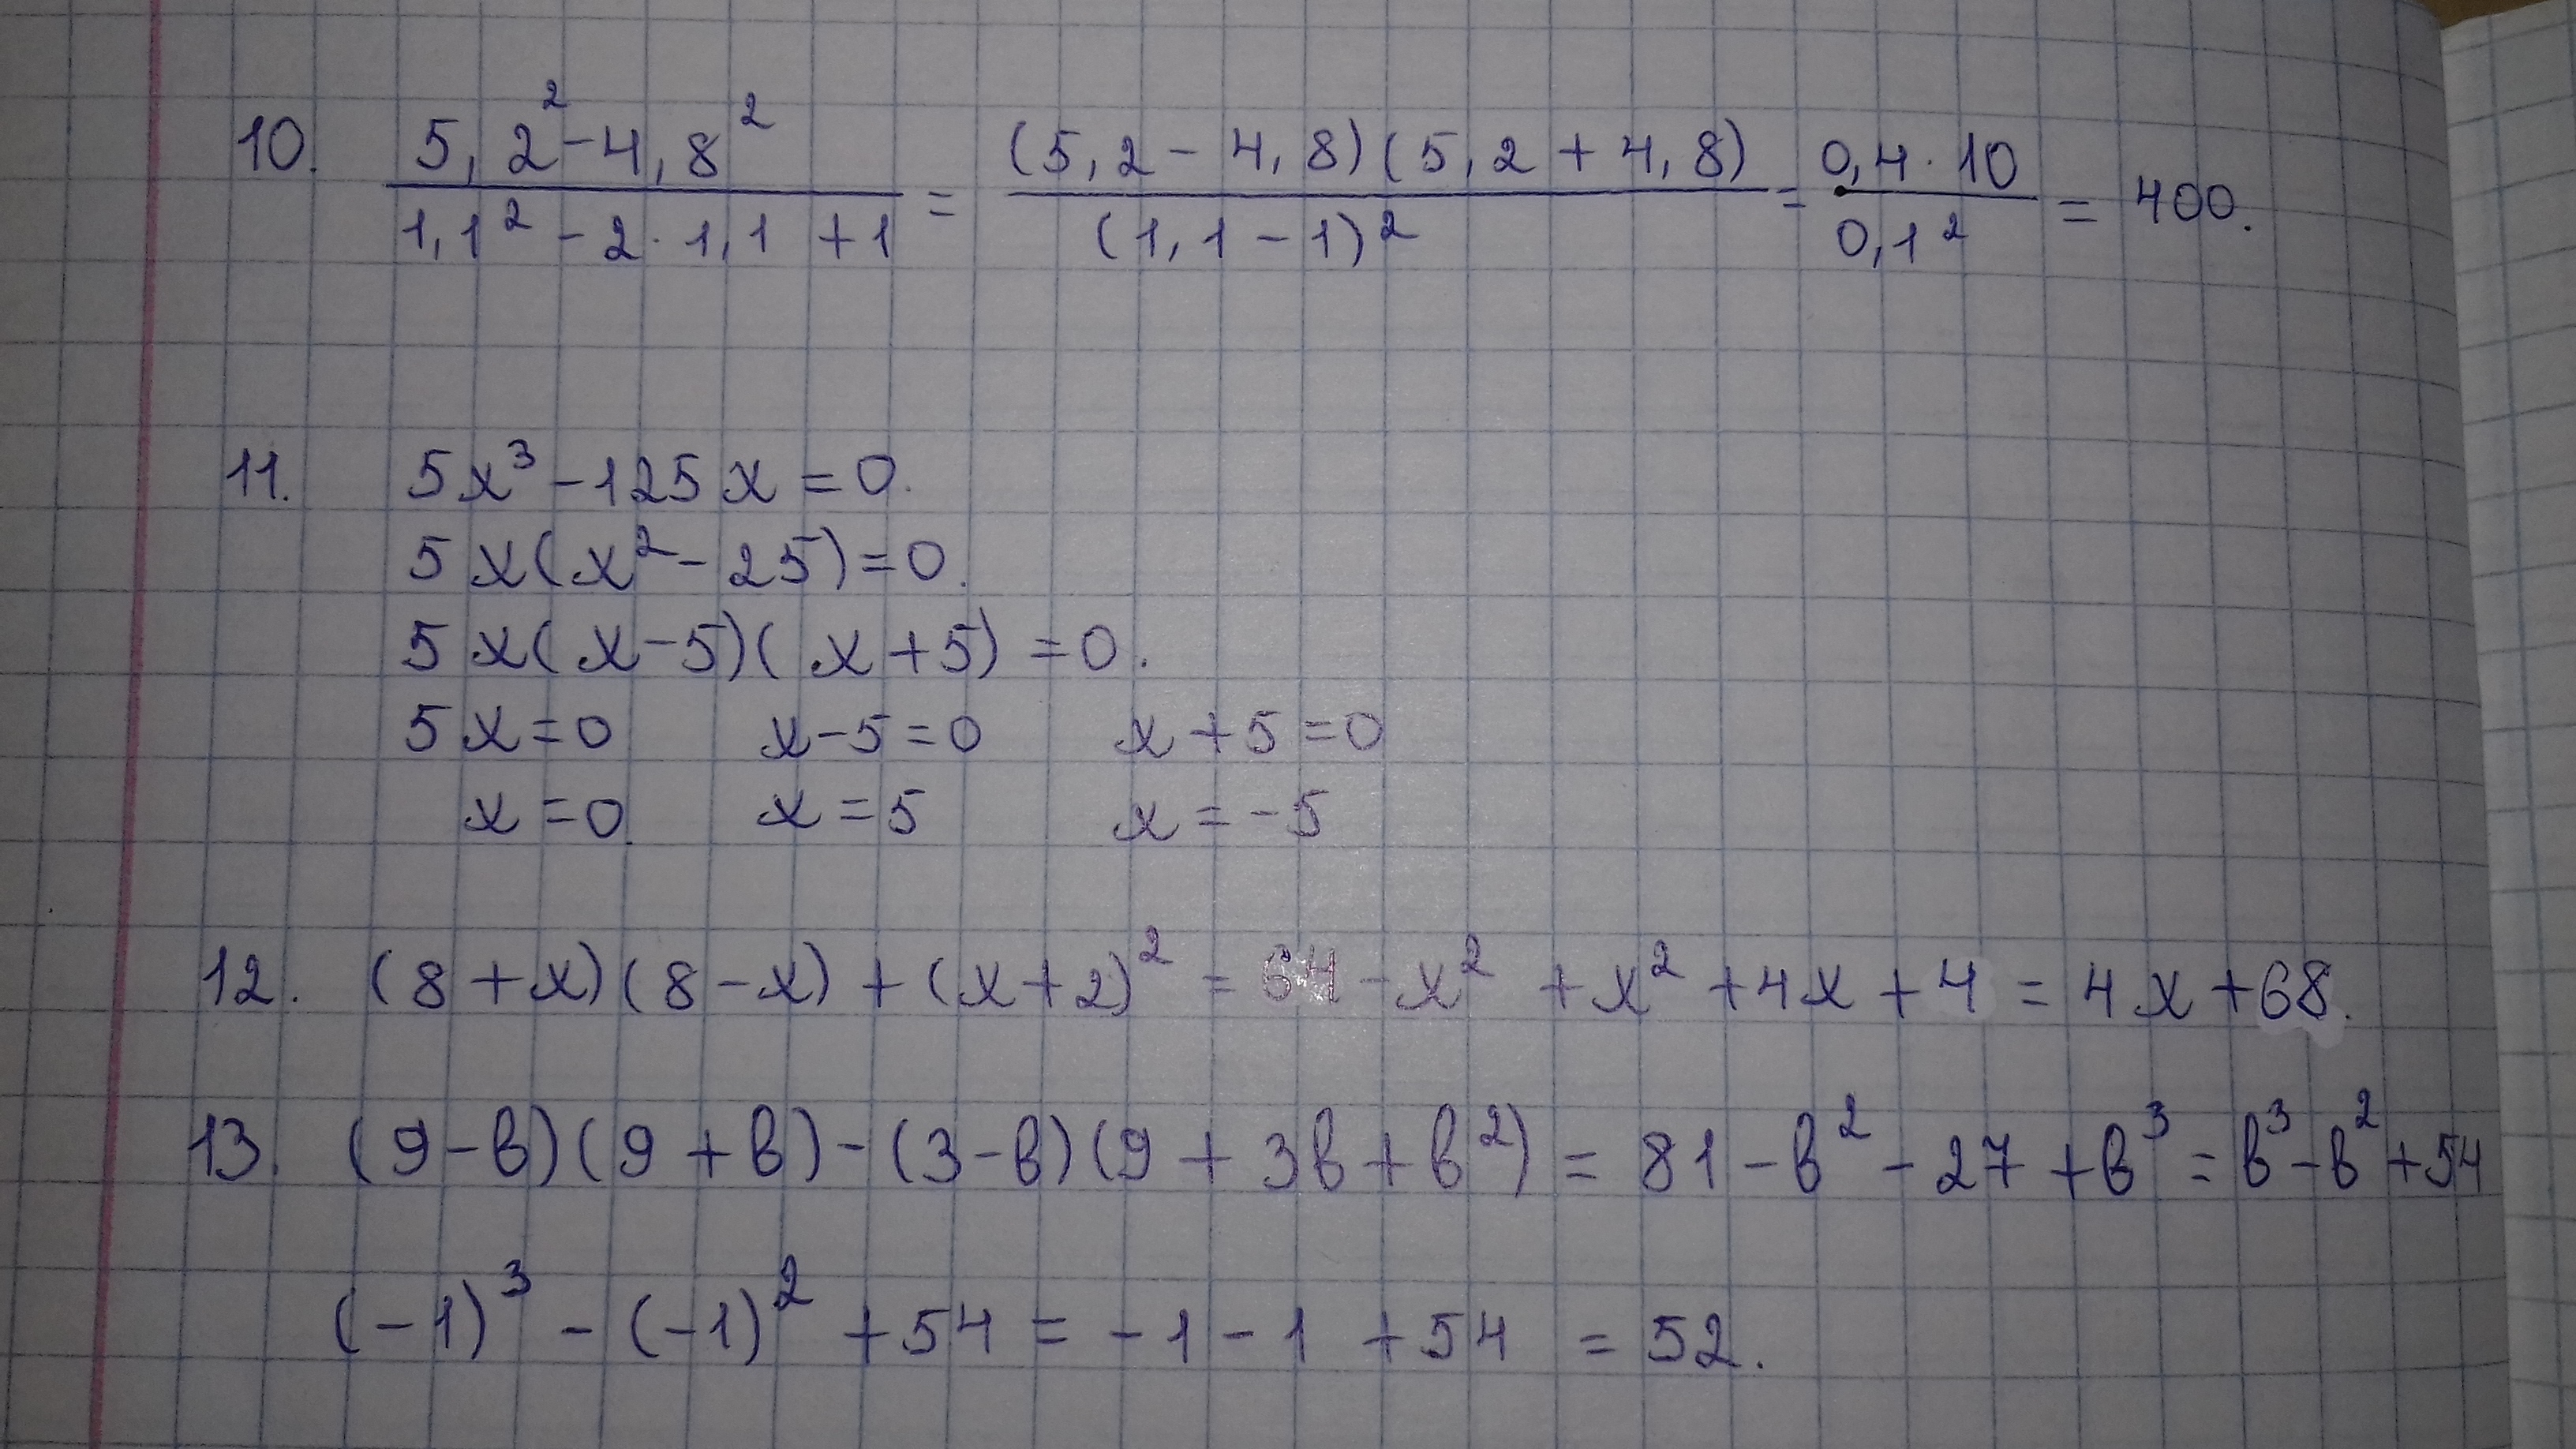 10. (5,2² - 4,8²)/(1,1² - 2·1,1 + 1) = ((5,2 - 4,8)(5,2 + 4,8))/((1,1 - 1)²) = (0,4·10)/(0,1²) = 400.
11. 5x³ - 125x = 0.
5x(x² - 25) = 0.
5x(x - 5)(x + 5) = 0.
5x = 0 x - 5 = 0 x + 5 = 0
x = 0. x = 5 x = -5
12. (8 + x)(8 - x) + (x + 2)² = 64 - x² + x² + 4x + 4 = 4x + 68.
13. (9 - в)(9 + в) - (3 - в)(9 + 3в + в²) = 81 - в² - 27 + в³ = в³ - в² + 54
(-1)³ - (-1)² + 54 = -1 - 1 + 54 = 52.